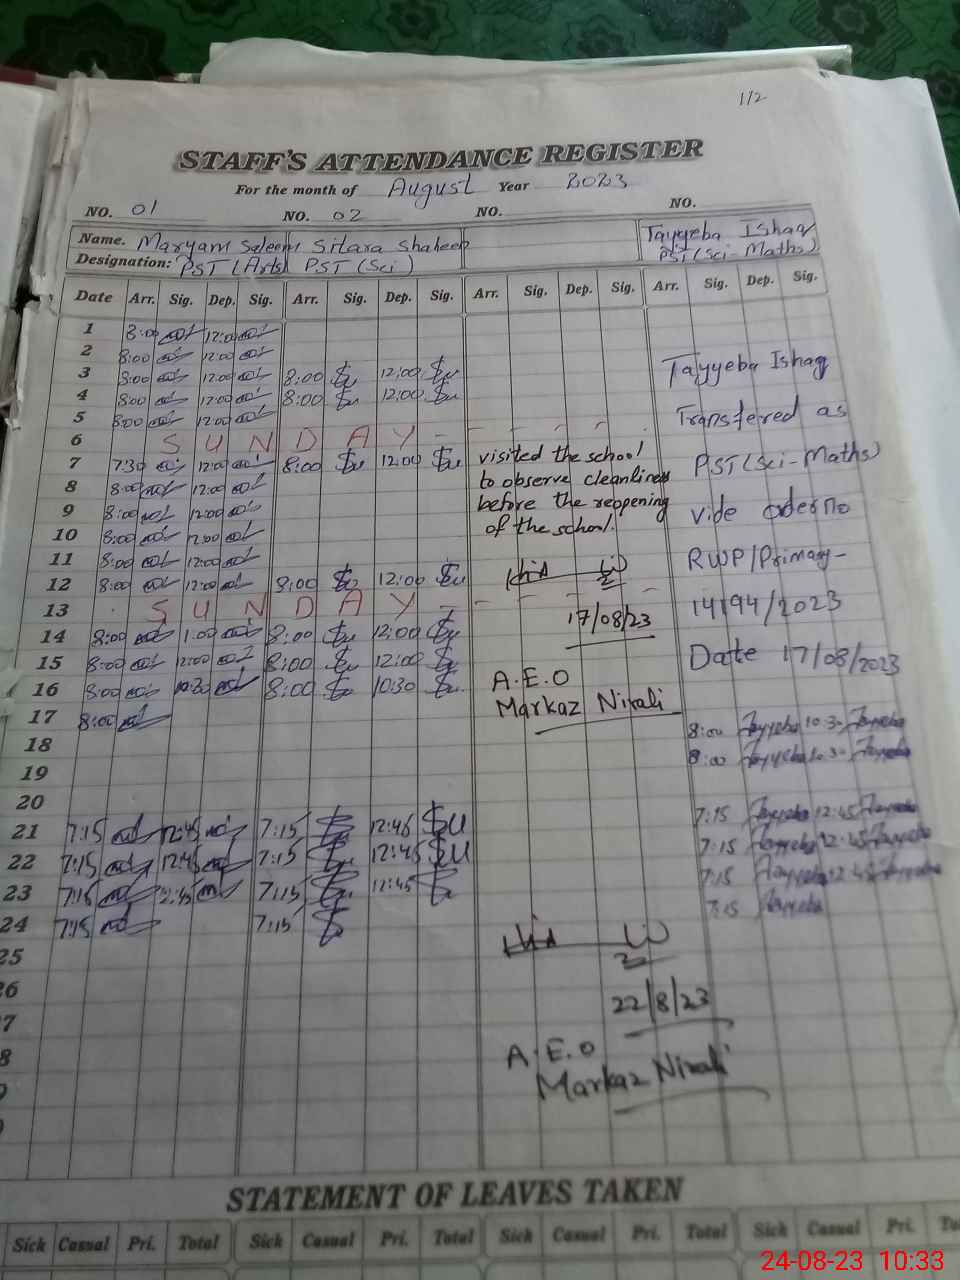 112
STAFF'S ATTENDANCE REGISTER
For the month of August Year 2023
NO. 01 NO. 02 NO. NO.
Name. Maryam Saleem Sitara Shaheen Tayyeba Ishaq
Designation: PST (Arts) PST (Sci) PST (Sci-Maths)
Date Arr. Sig. Dep. Sig. Arr. Sig. Dep. Sig. Arr. Sig. Dep. Sig. Arr. Sig. Dep. Sig.
1 8:00 12:00
2 8:00 12:00
3 8:00 12:00 8:00 12:00 Tayyeba Ishaq
4 8:00 12:00 8:00 12:00
5 8:00 12:00 Transfered as
6 SUNDAY
7 7:30 12:00 8:00 12:00 visited the school PST (Sci-Maths)
8 8:00 12:00 to observe cleanliness
9 8:00 12:00 before the reopening vide order no
10 8:00 12:00 of the school.
11 8:00 12:00 RWP/Primary-
12 8:00 12:00 8:00 12:00
13 SUNDAY 17/08/23 14194/2023
14 8:00 1:00 8:00 12:00
15 8:00 12:00 8:00 12:00 Date 17/08/2023
16 8:00 10:30 8:00 10:30 A.E.O
Markaz Nirali
17 8:00 8:00 Tayyeba 10:30 Tayyeba
18 8:00 Tayyeba 10:30 Tayyeba
19
20
21 7:15 12:45 7:15 12:45 7:15 Tayyeba 12:45 Tayyeba
22 7:15 12:45 7:15 12:45 7:15 Tayyeba 12:45 Tayyeba
23 7:15 12:45 7:15 12:45 7:15 Tayyeba 12:45 Tayyeba
24 7:15 7:15 7:15 Tayyeba
25
26 22/8/23
7
8 A.E.O
Markaz Nirali
STATEMENT OF LEAVES TAKEN
Sick Casual Pri. Total Sick Casual Pri. Total Sick Casual Pri. Total Sick Casual Pri.
24-08-23 10:33